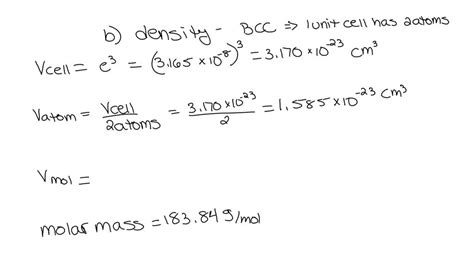 b) density - BCC ⇒ 1 unit cell has 2 atoms
Vcell = e³ = (3.165 × 10⁻⁸)³ = 3.170 × 10⁻²³ cm³
Vatom = Vcell/2atoms = 3.170×10⁻²³/2 = 1.585 × 10⁻²³ cm³
Vmol =
molar mass = 183.84g/mol